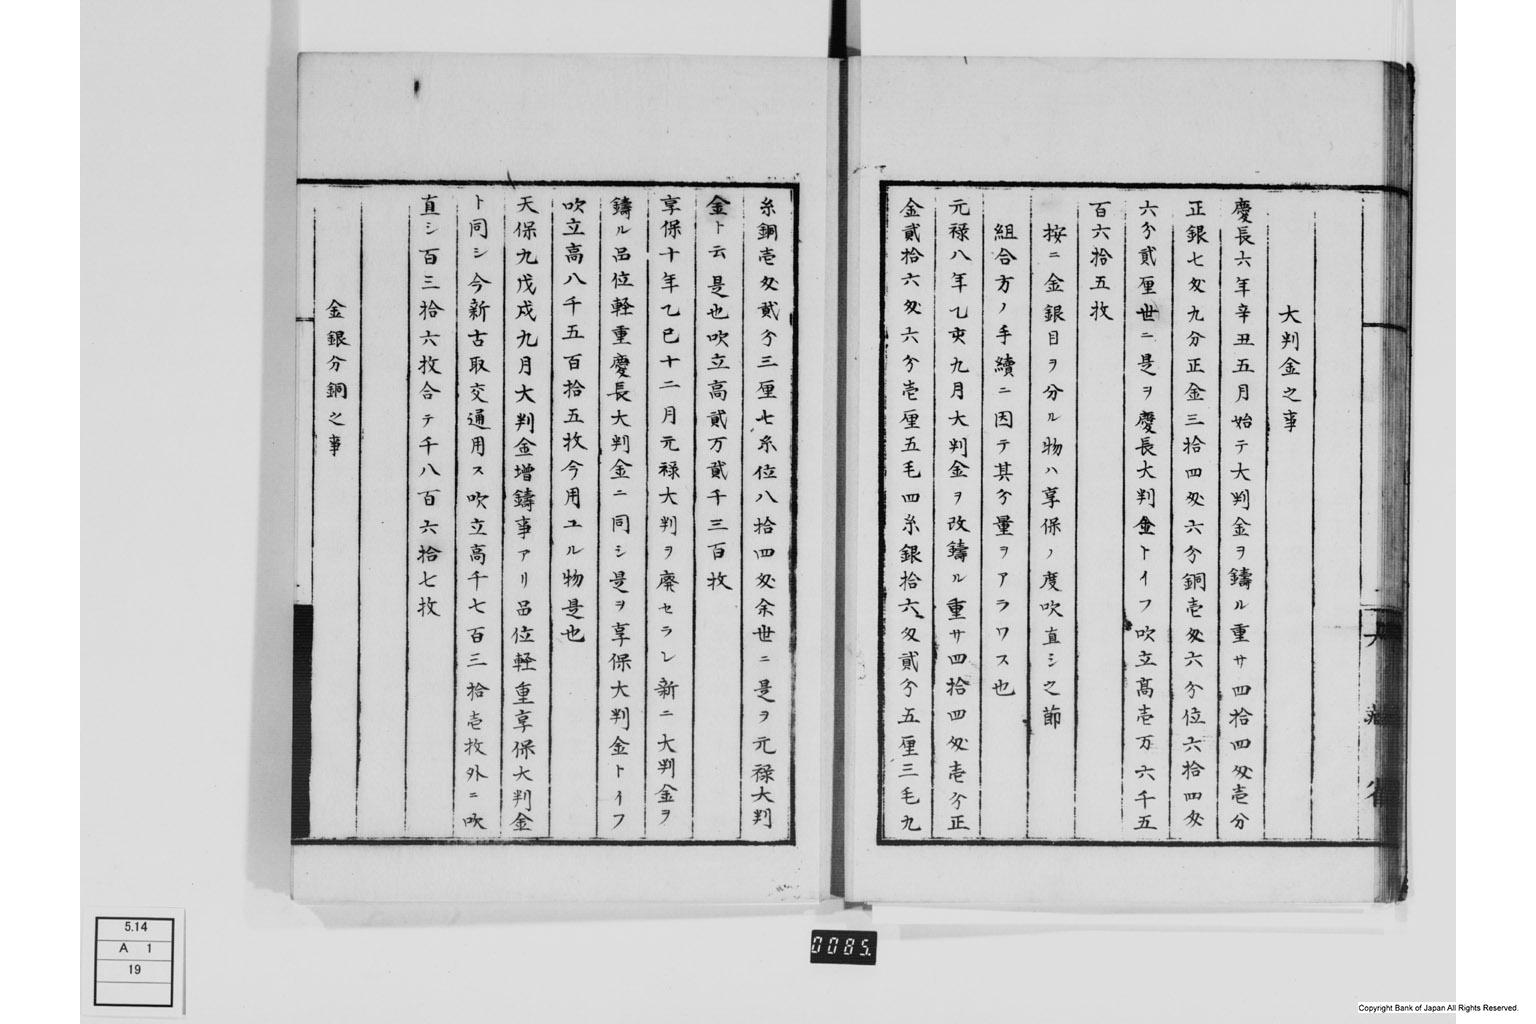 大判金之事
慶長六年辛丑五月始テ大判金ヲ鑄ル重サ四拾四匁壱分
正銀七匁九分正金三拾四匁六分銅壱匁六分位六拾四匁
六分貳厘世ニ是ヲ慶長大判金トイフ吹立高壱万六千五
百六拾五枚
按ニ金銀目ヲ分ル物ハ享保ノ度吹直シ之節
組合方ノ手續ニ因テ其分量ヲアラワス也
元禄八年乙亥九月大判金ヲ改鑄ル重サ四拾四匁壱分正
金貳拾六匁六分壱厘五毛四糸銀拾六匁貳分五厘三毛九
糸銅壱匁貳分三厘七糸位八拾四匁余世ニ是ヲ元禄大判
金ト云是也吹立高貳万貳千三百枚
享保十年乙巳十二月元禄大判ヲ廢セラレ新ニ大判金ヲ
鑄ル品位軽重慶長大判金ニ同シ是ヲ享保大判金トイフ
吹立高八千五百拾五枚今用ユル物是也
天保九戊戌九月大判金增鑄事アリ品位軽重享保大判金
ト同シ今新古取交通用ス吹立高千七百三拾壱枚外ニ吹
直シ百三拾六枚合テ千八百六拾七枚
金銀分銅之事
大藏省
0085.
5.14
A 1
19
Copyright Bank of Japan All Rights Reserved.